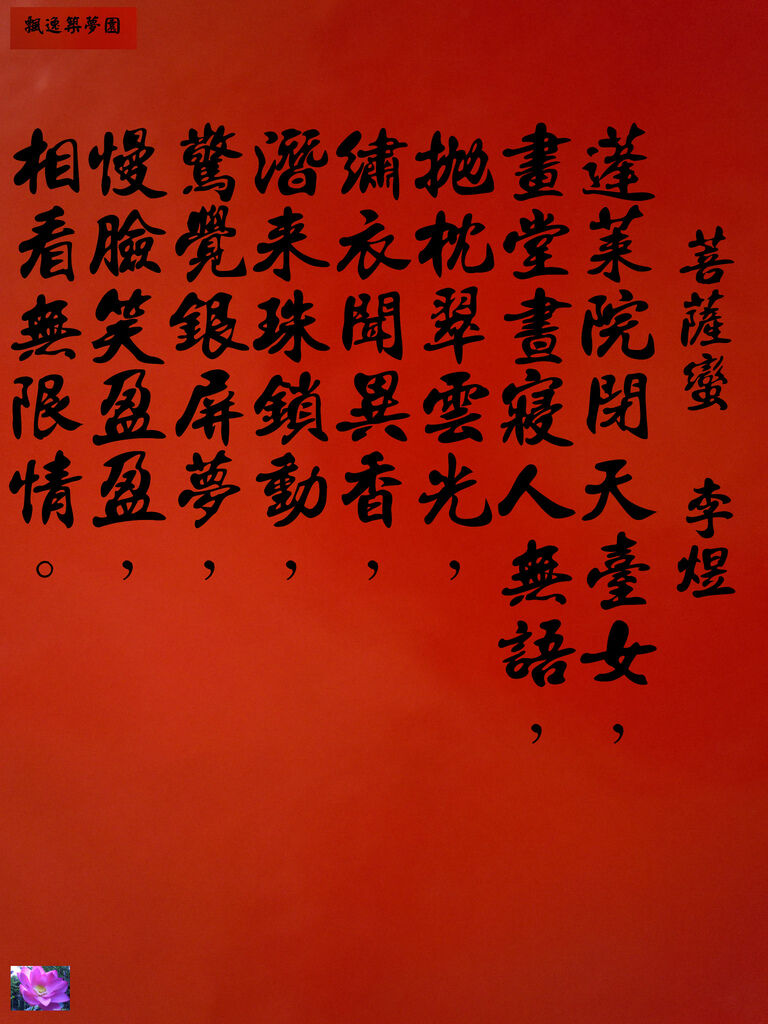 飄逸築夢園
菩薩蠻 李煜
蓬萊院閉天臺女,
畫堂晝寢人無語,
拋枕翠雲光,
繡衣聞異香,
潛来珠鎖動,
驚覺銀屏夢,
慢臉笑盈盈,
相看無限情。